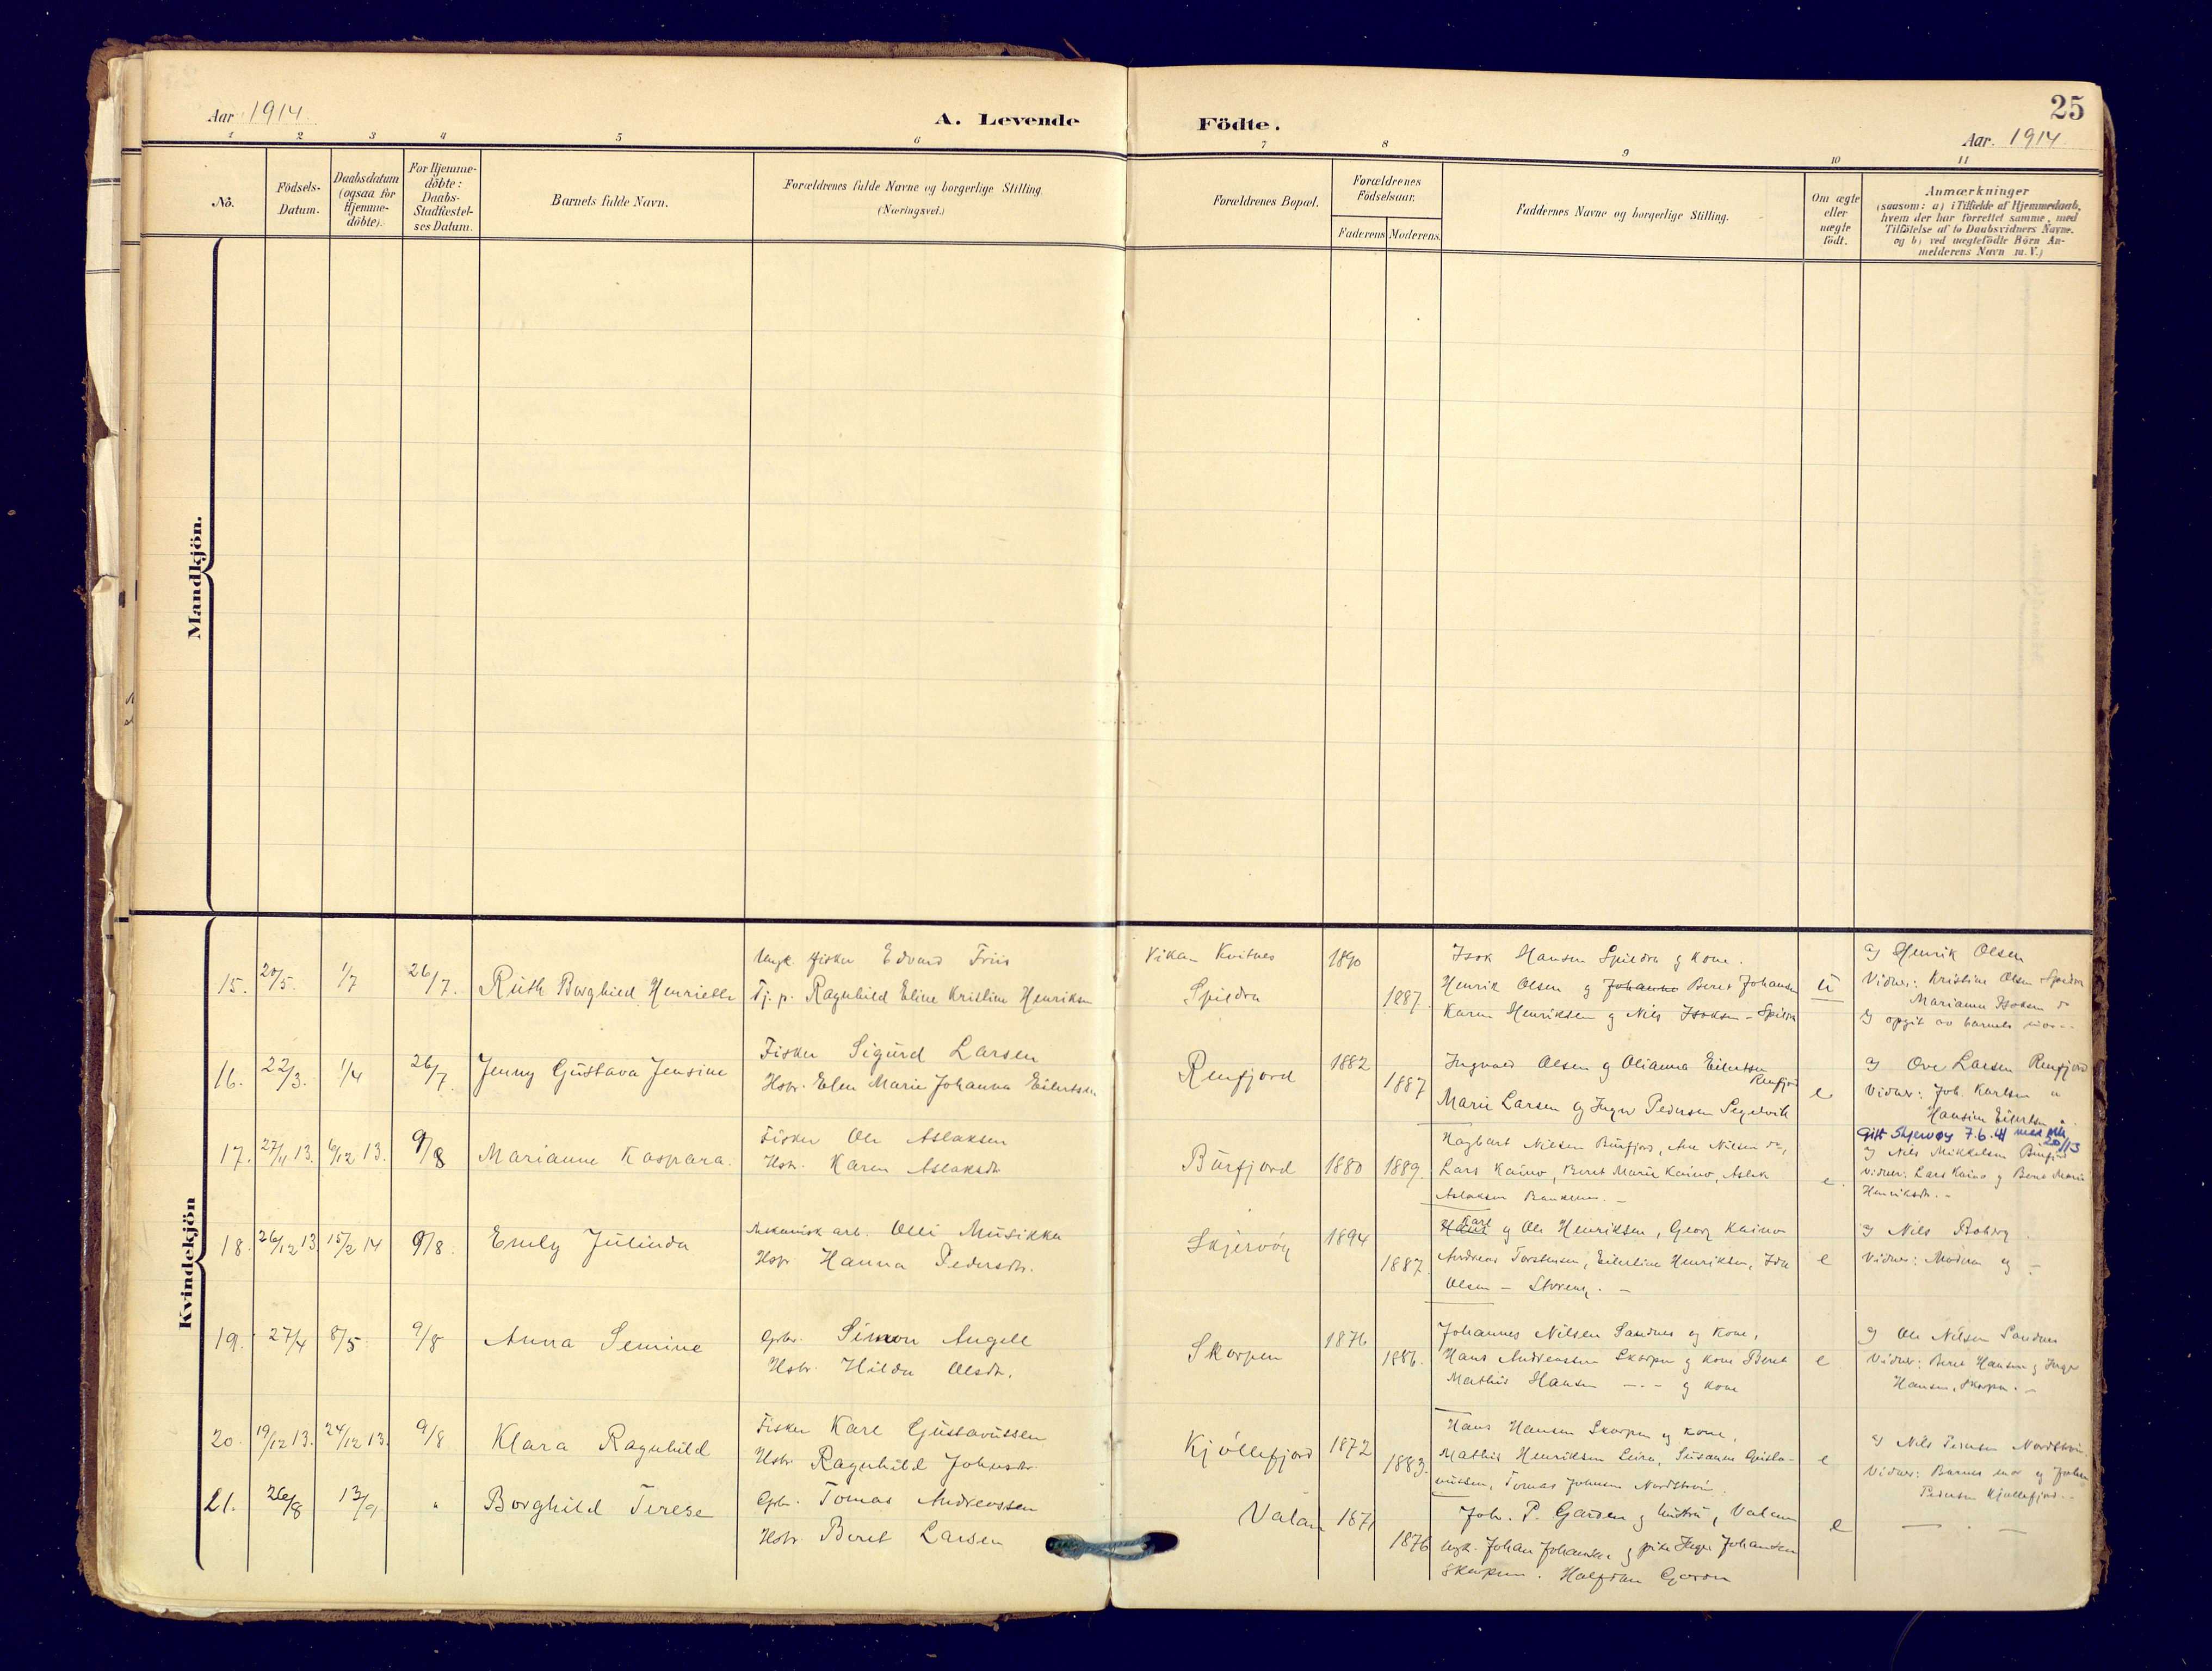 25
Aar 1914.
A. Levende Födte.
Aar. 1914
1 2 3 4 5 6 7 8 9 10 11
No.
Födsels-Datum.
Daabsdatum (ogsaa for Hjemme-döbte).
For Hjemme-döbte: Daabs-Stadfæstel-ses Datum.
Barnets fulde Navn.
Forældrenes fulde Navne og borgerlige Stilling.
(Næringsvei.)
Forældrenes Bopæl.
Forældrenes Födselsaar.
Faderens Moderens.
Faddernes Navne og borgerlige Stilling.
Om ægte eller uægte födt.
Anmærkninger
(saasom: a) i Tilfælde af Hjemmedaab,
hvem der har forrettet samme, med
Tilföielse af to Daabsvidners Navne.
og b) ved uægtefödte Börn An-
melderens Navn m. V.)
Mandkjön.
Kvindekjön
15. 20/5. 1/7 26/7. Ruth Borghied Henriette
Ungk. fisker Edvard Friis
Tj. p. Ragnhild Eline Kristine Henriksen
Vikan Kvitnes 1890
Spildra 1887.
Isak Hansen Spildra og kone.
Henrik Olsen og Johanne Beret Johansen
Karen Henriksen og Nils Isaksen - Spildra
u
a) Henrik Olsen
Vidner: Kristine Olsen Spildra
Marianne Isaksen do
b) opgit av barnets mor
16. 22/3. 1/4 26/7. Jenny Gustava Jensine
Fisker Sigurd Larsen
Hstr. Elen Marie Johanna Eilertsen
Reinfjord 1882 1887
Ingvald Olsen og Olianna Eilertsen Reinfjord
Marie Larsen og Inger Pedersen Segelvik
e
a) Ove Larsen Reinfjord
Vidner: Joh. Karlsen
Hansine Eilertsen
17. 27/11 13. 6/12 13. 9/8 Marianne Kaspara.
Fisker Ole Aslaksen
Hstr. Karen Aslaksdtr.
Burfjord 1880 1889.
Hagbart Nilsen Burfjord, Ane Nilsen do,
Lars Kaino, Beret Marie Kaino, Aslak
Aslaksen
e.
Gift Skjervøy 7.6.41 med
a) Nils Mikkelsen Burfjord
Vidner: Lars Kaino og Beret Marie
Henriksdtr. -
18. 26/12 13. 15/2 14 9/8. Emly Julinda
Mekanisk arb. Olli Musikka
Hstr. Hanna Pedersdtr.
Skjervøy 1894 1887.
Karl og Ole Henriksen, Georg Kaino
Andreas Torstensen, Eilertine Henriksen, Ida
Olsen - Storeng. -
e
a) Nils Boberg
Vidner: Moderen og -
19. 27/4 8/5. 9/8 Anna Semine
Gbr. Simon Angell
Hstr. Hilda Olsdtr.
Skorpen 1876 1886.
Johannes Nilsen Sandnes og kone,
Hans Andreassen Skorpen og kone Beret
Mathis Hansen -.- og kone
e
a) Ole Nilsen Sandnes
Vidner: Beret Hansen og Inger
Hansen, Skorpen. -
20. 19/12 13. 24/12 13. 9/8 Klara Ragnhild
Fisker Karl Gustavussen
Hstr. Ragnhild Johnsdtr.
Kjöllefjord 1872 1883.
Hans Hansen Skorpen og kone,
Mathis Henriksen Leira, Susanne Gusta-
vussen, Tomas Johnsen
e
a) Nils
Vidner: Barnets mor og Johan
Pedersen Kjöllefjord. -
21. 26/8 13/9 " Borghild Terese
Gbr. Tomas Andreassen
Hstr. Beret Larsen
Valan 1871 1876
Joh. P. Garden og hustru, Valan
Ungk. Johan Johansen og pike Inger Johansen
Skorpen. Halfdan
e
- . -